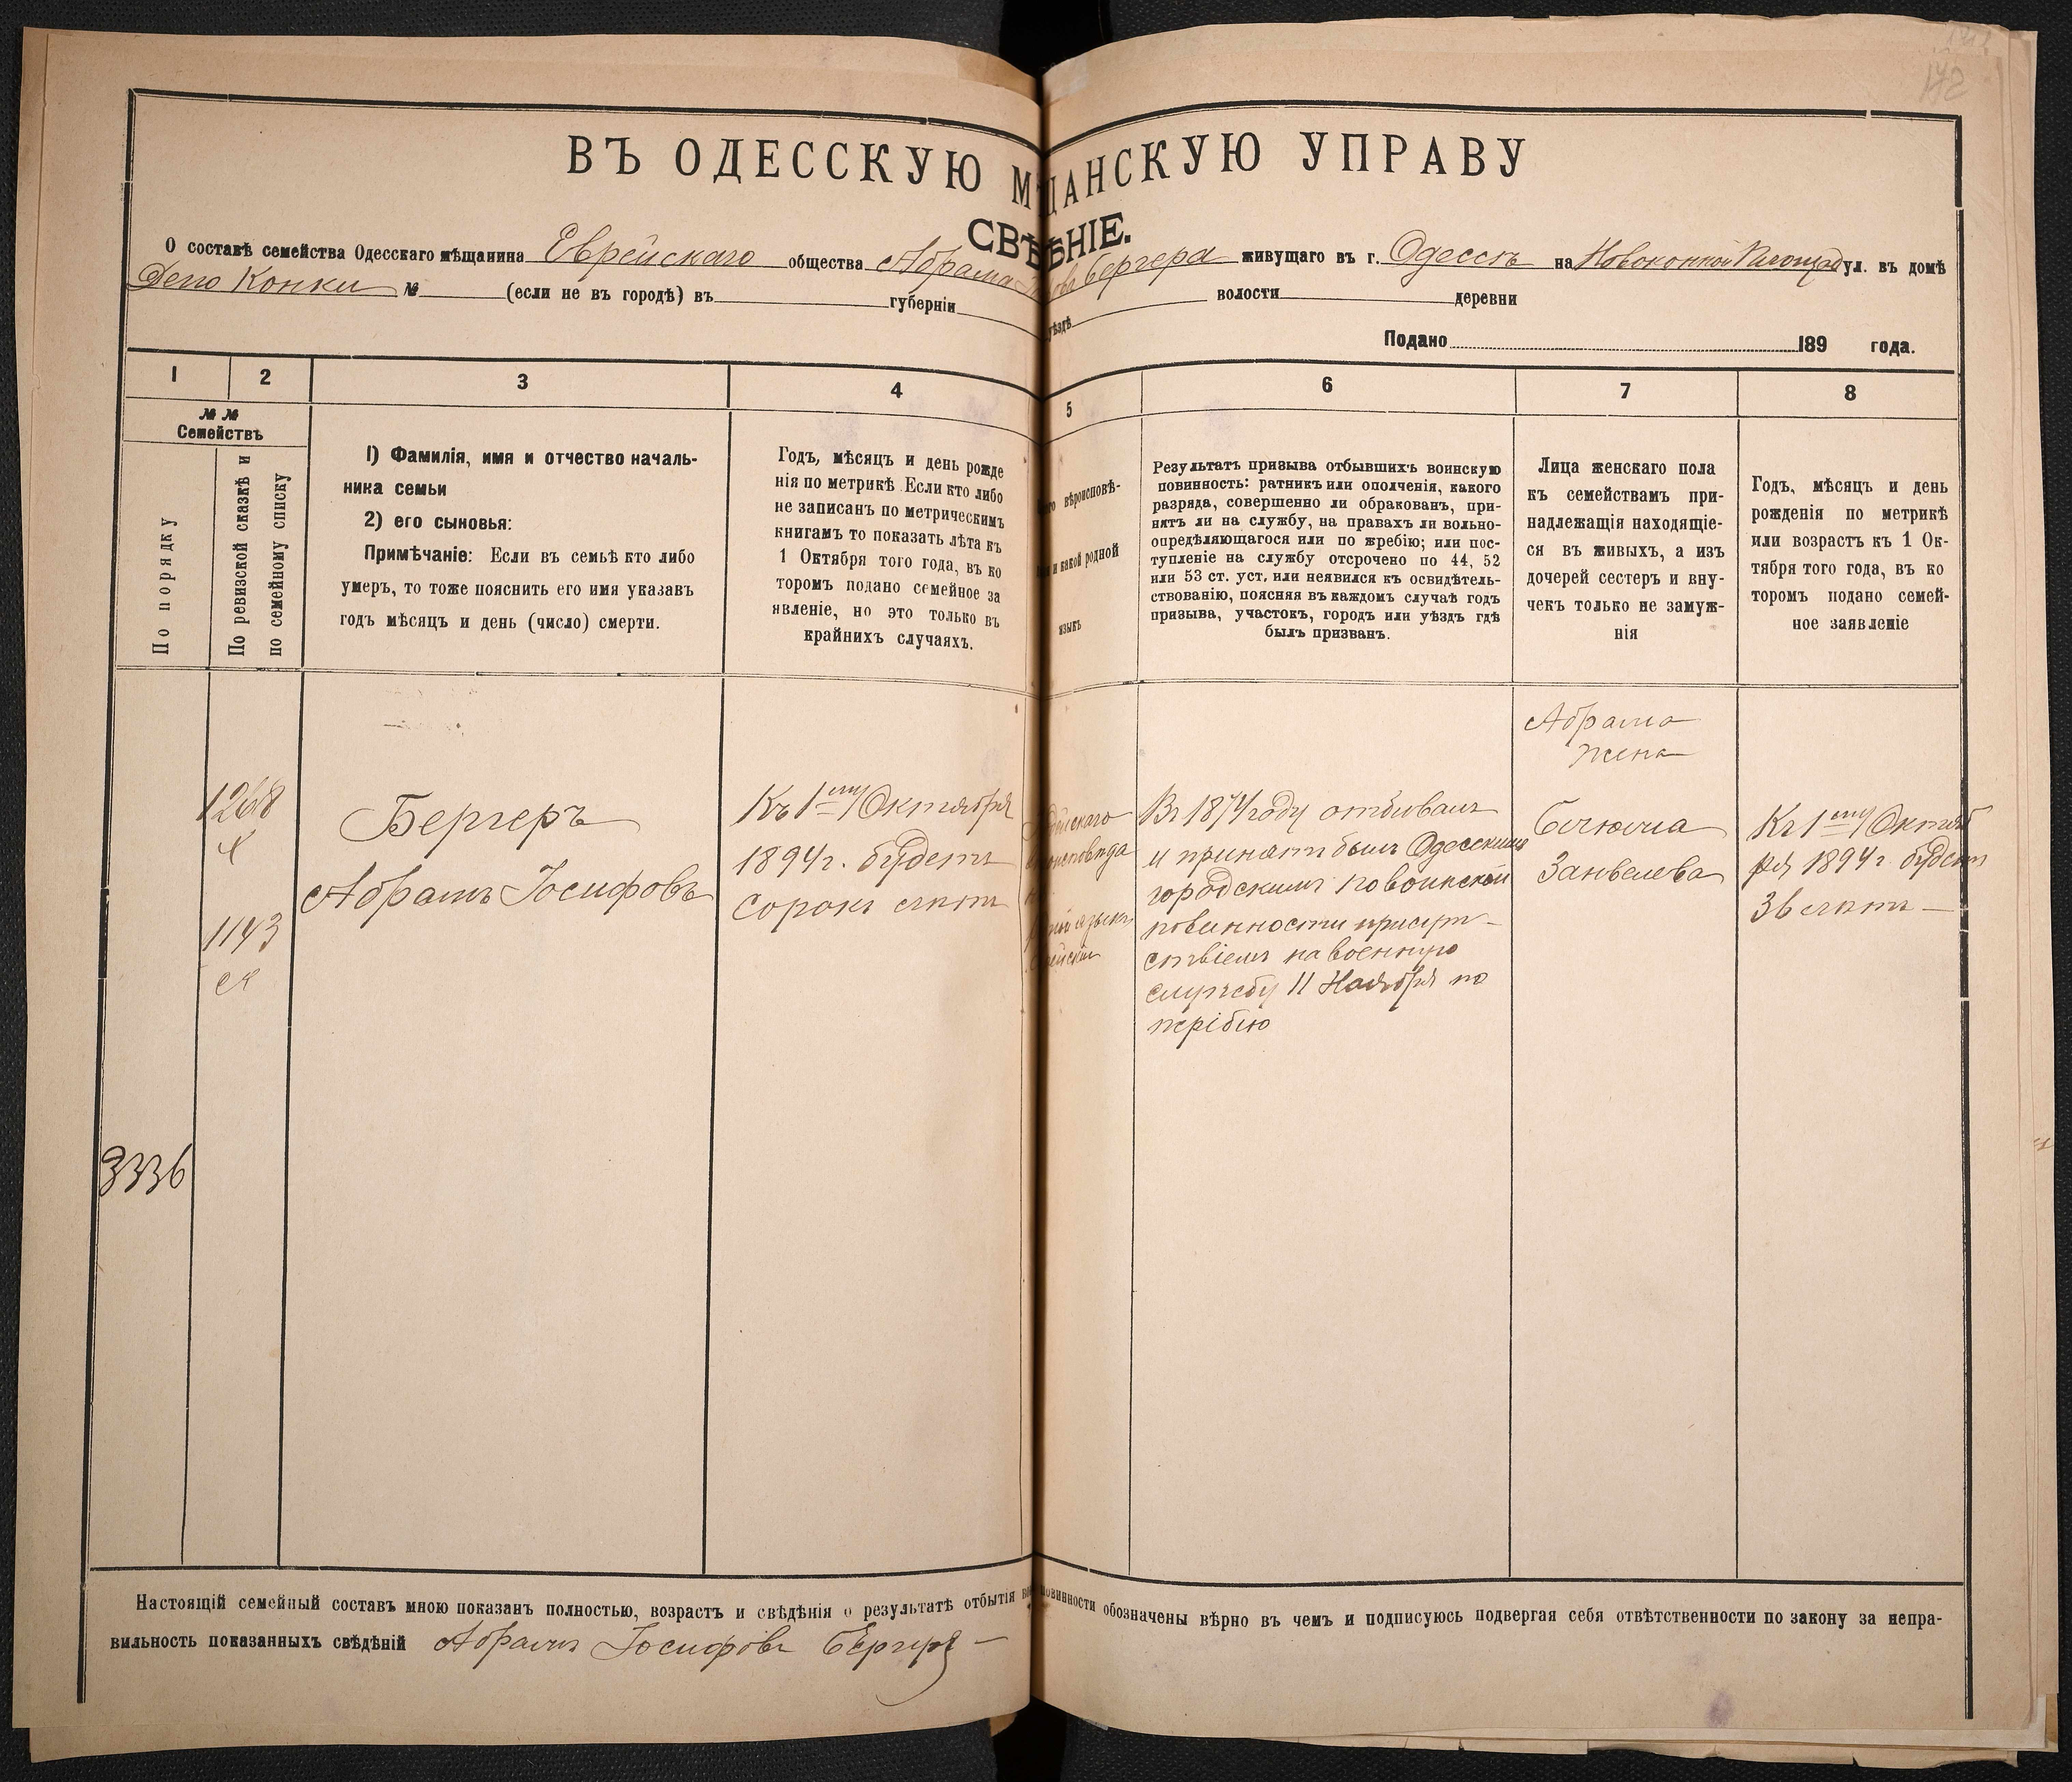 172
ВЪ ОДЕССКУЮ МѢЩАНСКУЮ УПРАВУ
СВѢДѢНІЕ.
О составѣ семейства Одесскаго мѣщанина Еврейскаго общества Абрама Бергера живущаго въ г. Одессѣ на Новоконной Площад ул. въ домѣ
Депо Конки № (если не въ городѣ) въ губерніи уѣздѣ волости деревни
Подано 189 года.
1 2 3 4 5 6 7 8
№ №
Семействъ
По порядку
По ревизской сказкѣ и
по семейному списку
1) Фамилія, имя и отчество началь-
ника семьи
2) его сыновья:
Примѣчаніе: Если въ семьѣ кто либо
умеръ, то тоже пояснить его имя указавъ
годъ мѣсяцъ и день (число) смерти.
Годъ, мѣсяцъ и день рожде
нія по метрикѣ. Если кто либо
не записанъ по метрическимъ
книгамъ то показать лѣта къ
1 Октября того года, въ ко
торомъ подано семейное за
явленіе, но это только въ
крайнихъ случаяхъ.
вѣроисповѣ-
и какой родной
языкъ
Результатъ призыва отбывшихъ воинскую
повинность: ратникъ или ополченія, какого
разряда, совершенно ли обракованъ, при-
нятъ ли на службу, на правахъ ли вольно-
опредѣляющагося или по жребію; или пос-
тупленіе на службу отсрочено по 44, 52
или 53 ст. уст. или неявился къ освидѣтель-
ствованію, поясняя въ каждомъ случаѣ годъ
призыва, участокъ, городъ или уѣздъ гдѣ
былъ призванъ.
Лица женскаго пола
къ семействамъ при-
надлежащія находящіе-
ся въ живыхъ, а изъ
дочерей сестеръ и вну-
чекъ только не замуж-
нія
Годъ, мѣсяцъ и день
рожденія по метрикѣ
или возрастъ къ 1 Ок-
тября того года, въ ко
торомъ подано семей-
ное заявленіе
3336
1268
1143
Бергеръ
Абрамъ Іосифовъ
Къ 1му Октября
1894 г. будетъ
сорокъ лѣтъ
языкъ
Въ 1874 году отбывалъ
и принятъ былъ Одесскимъ
городскимъ по воинской
повинности присут-
ствіемъ на военную
службу 11 Ноября по
жрібію
Абрама
жена
Занвелева
Къ 1му Октяб
ря 1894 г. будетъ
36 лѣтъ
Настоящій семейный составъ мною показанъ полностью, возрастъ и свѣдѣнія о результатѣ отбытія повинности обозначены вѣрно въ чемъ и подписуюсь подвергая себя отвѣтственности по закону за непра-
вильность показанныхъ свѣдѣній Абрамъ Іосифовъ Бергеръ